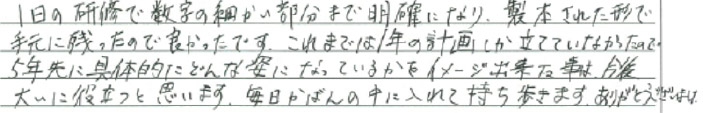 1日の研修で数字の細かい部分まで明確になり、製本された形で
手元に残ったので良かったです。これまでは1年の計画しか立てていなかったので
5年先に具体的にどんな姿になっているかをイメージ出来た事は、今後
大いに役立つと思います。毎日かばんの中に入れて持ち歩きます。ありがとうございました。